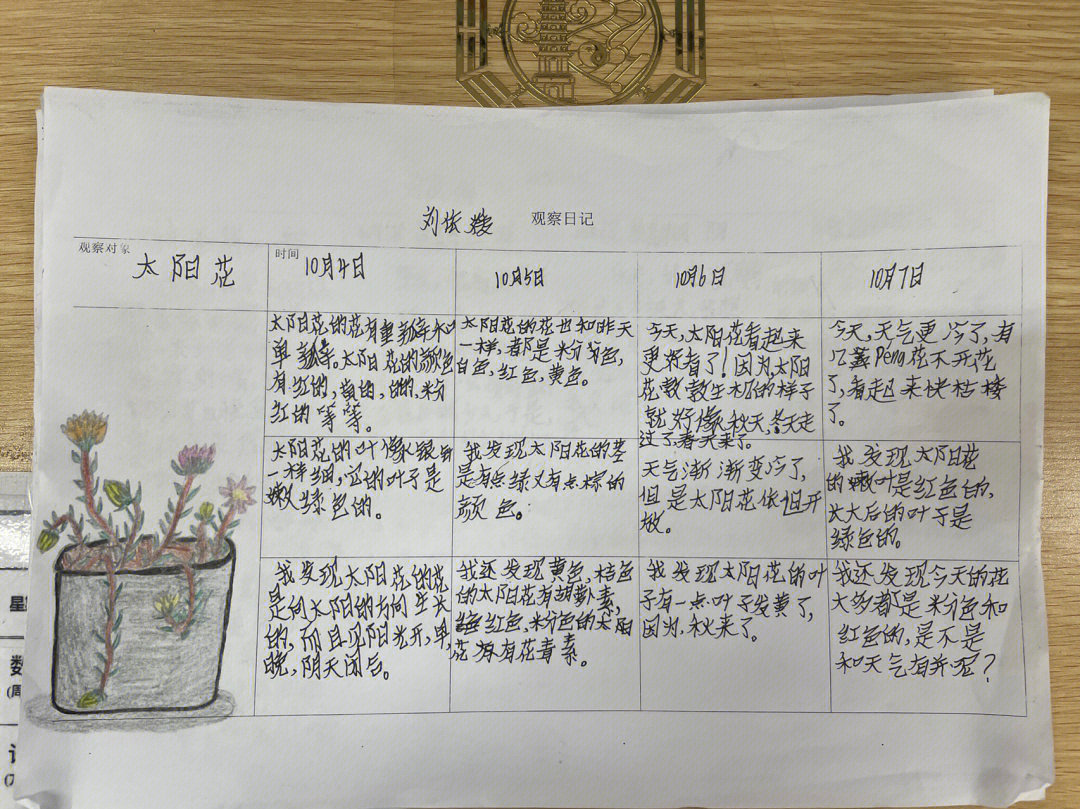 刘依 观察日记
观察对象
太阳花
时间
10月4日
10月5日
10月6日
10月7日
太阳花的花有重瓣和
单瓣。太阳花的颜色
有红的,白的,粉
红的等等。
太阳花的花也和昨天
一样,都是粉色,
白色,红色,黄色。
今天,太阳花看起来
更好看了!因为,太阳
花数数生机的样子
就好像,秋天,冬天走
过了,春天来了。
今天,天气更冷了,有
几盖Peng花不开花
了,看起来快枯楼
了。
太阳花的叶像银
一样细,它的叶子是
嫩绿色的。
我发现太阳花的茎
是有点绿又有点棕的
颜色。
天气渐渐变冷了,
但是太阳花依但开
放。
我发现太阳花
的嫩叶是红色的,
长大后的叶子是
绿色的。
我发现太阳花的花
是向太阳的方向生长
的,而且见阳光开,早,
晚,阴天闭合。
我还发现黄色,桔色
的太阳花有胡萝卜素,
红色,粉色的太阳
花有花青素。
我发现太阳花的叶
子有一点叶子发黄了,
因为,秋来了。
我还发现今天的花
大多都是粉色和
红色的,是不是
和天气有关呢?
星
数
(周